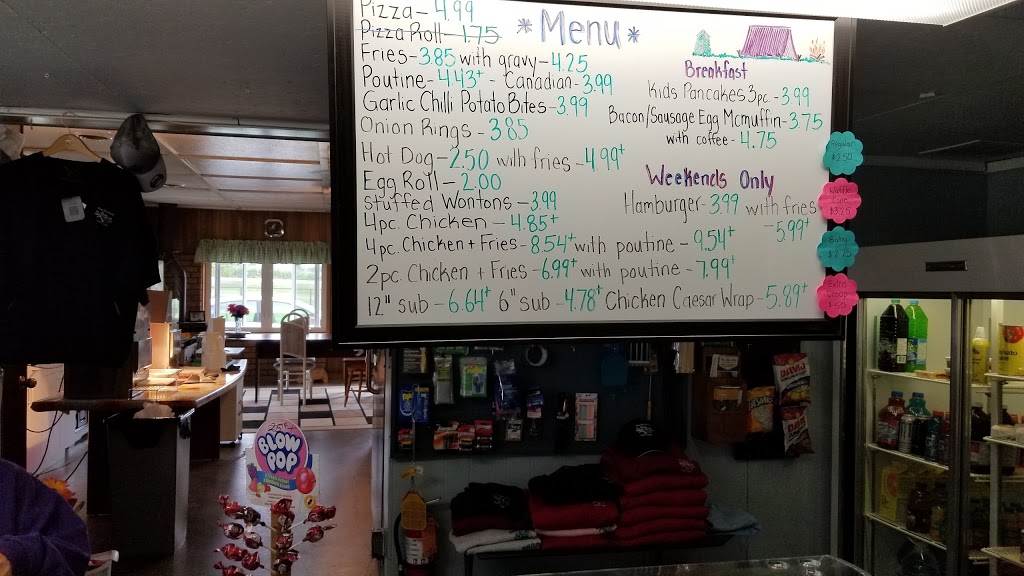 Pizza - 4.99
Pizza Roll - 1.75
* Menu *
Fries - 3.85 with gravy - 4.25
Poutine - 4.43+ - Canadian - 3.99
Garlic Chilli Potato Bites - 3.99
Onion Rings - 3.85
Hot Dog - 2.50 with fries - 4.99+
Egg Roll - 2.00
stuffed Wontons - 3.99
4pc. Chicken - 4.85+
4pc. Chicken + Fries - 8.54+ with poutine - 9.54+
2pc. Chicken + Fries - 6.99+ with poutine - 7.99+
12" sub - 6.64+ 6" sub - 4.78+ Chicken Caesar Wrap - 5.89+
Breakfast
Kids Pancakes 3pc. - 3.99
Bacon/Sausage Egg Mcmuffin - 3.75
with coffee - 4.75
Weekends Only
Hamburger - 3.99 with fries
- 5.99+
Regular
$2.50
Waffle
Cone
$3.25
Baby
$2.25
Extra
Scoop
$.50
BLOW
POP